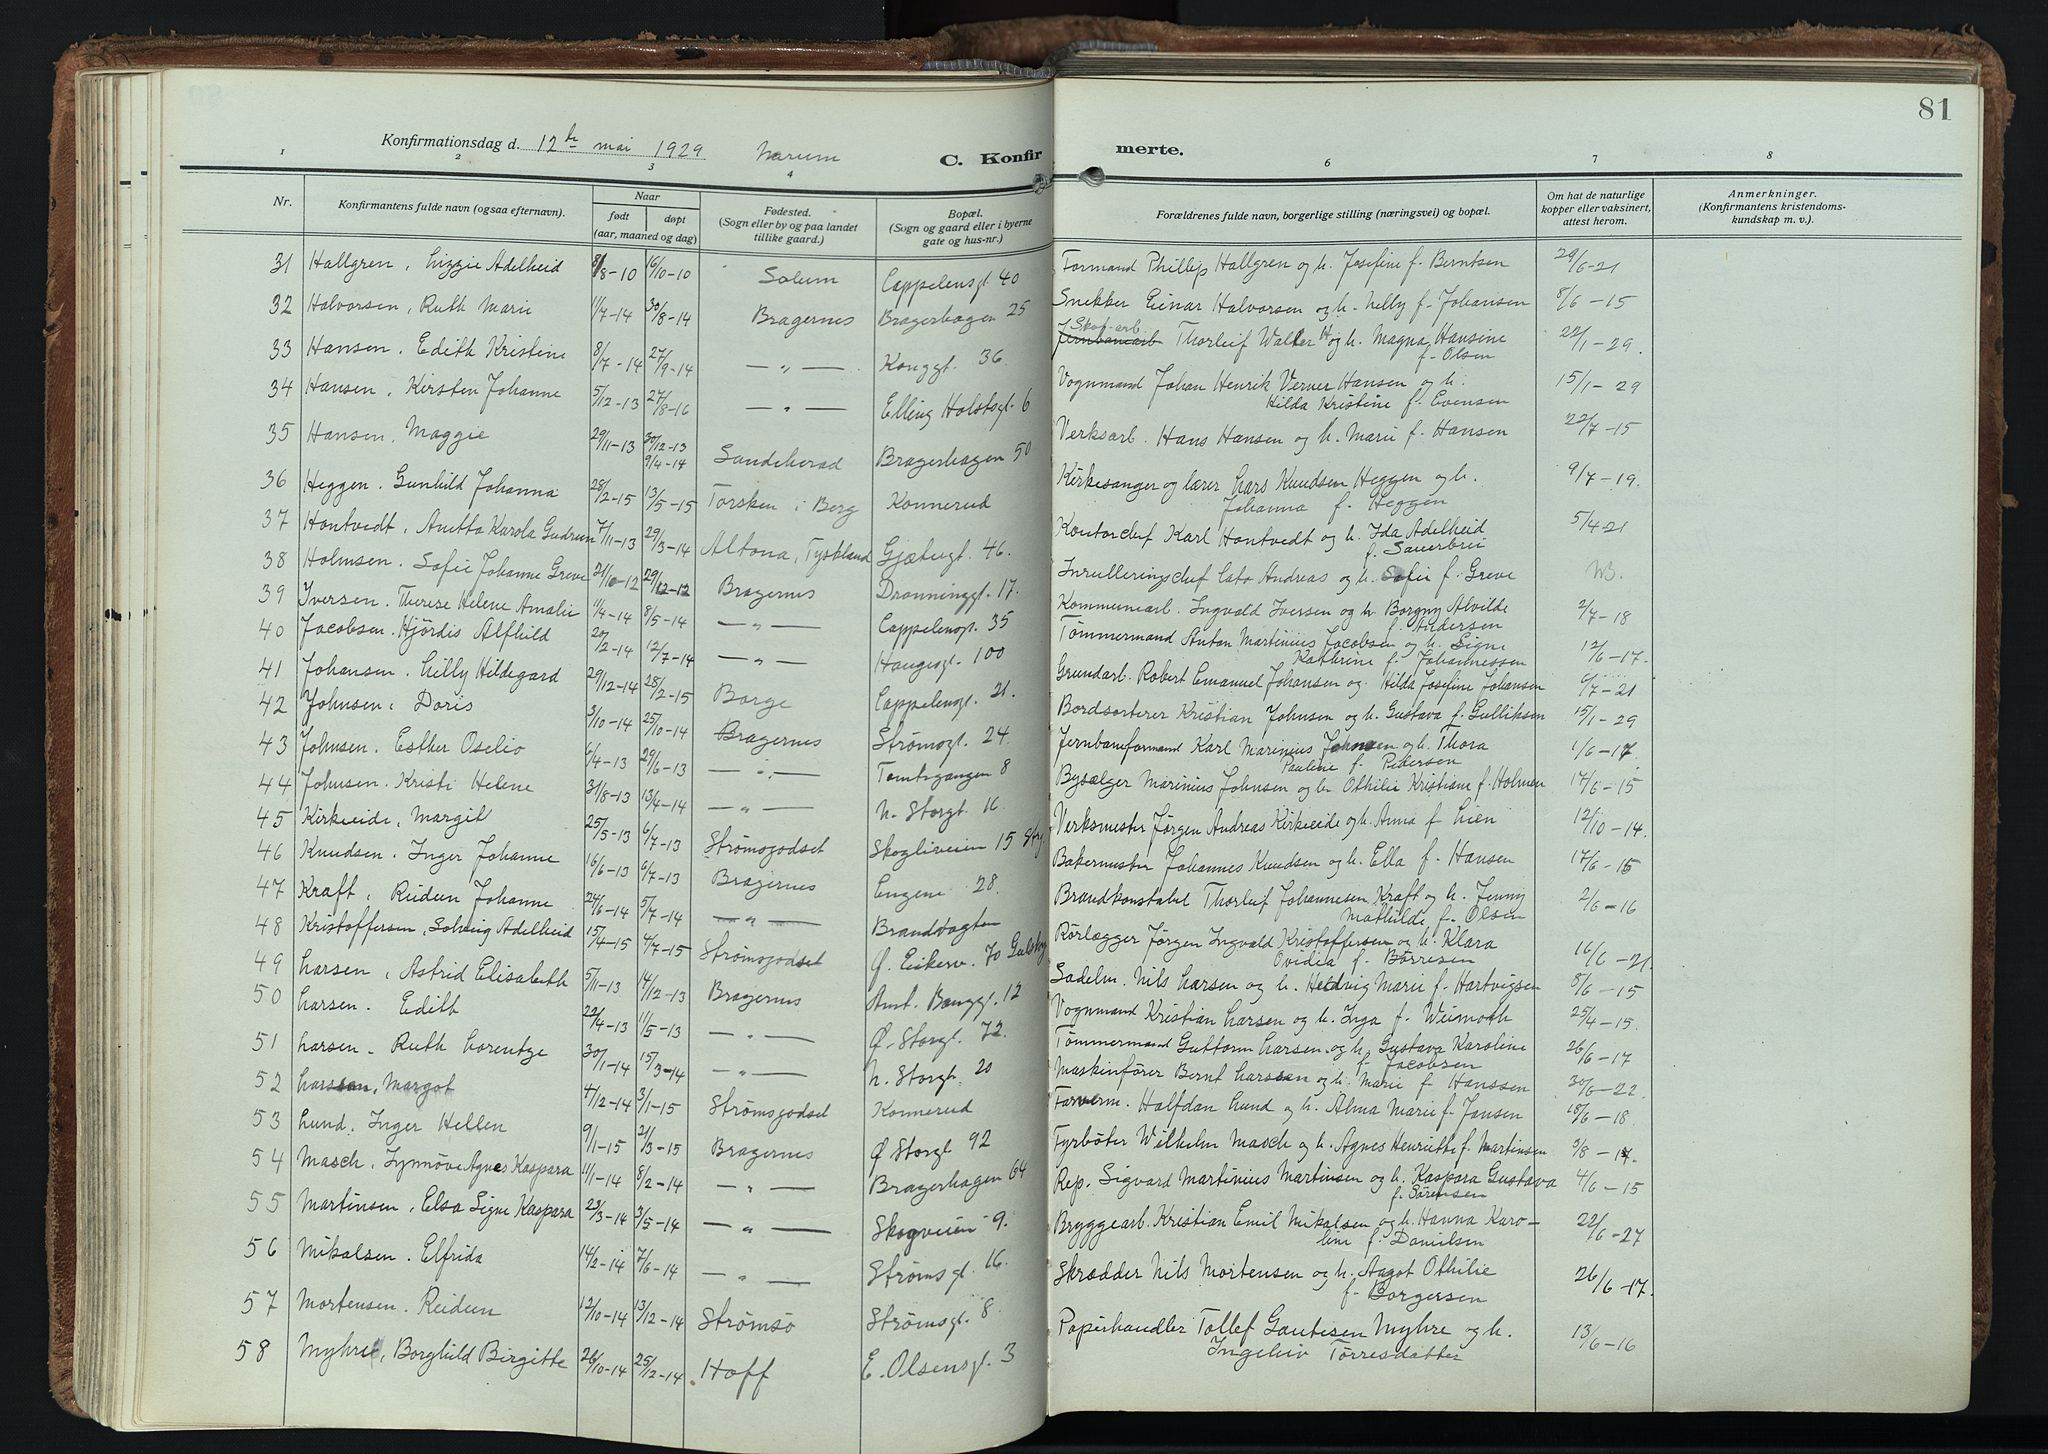 81
Konfirmationsdag d. 12te mai 1929 Narum C. Konfirmerte.
1 2 3 4 6 7 8
Nr. Konfirmantens fulde navn (ogsaa efternavn). Naar født døpt (aar, maaned og dag) Fødested. (Sogn eller by og paa landet tillike gaard.) Bopæl. (Sogn og gaard eller i byerne gate og hus-nr.) Forældrenes fulde navn, borgerlige stilling (næringsvei) og bopæl. Om hat de naturlige kopper eller vaksinert, attest herom. Anmerkninger. (Konfirmantens kristendomskundskap m. v.)
31 Hallgren, Lizzie Adelheid 8/8-10 16/10-10 Solum Cappelensgt. 40 Formand Phillip Hallgren og h. Josefine f. Berntsen 29/6-21
32 Halvorsen, Ruth Marie 1/7-14 30/8-14 Bragernes Bragerhagen 25 Snekker Einar Halvorsen og h. Nelly f. Johansen 8/6-15
33 Hansen. Edith Kristine 8/7-14 27/9-14 — „ — Konggt. 36 Jernbanearb Skof.arb. Thorleif Walter H. og h. Magna Hansine f. Olsen 22/1-29.
34 Hansen, Kirsten Johanne 5/12-13 27/8-16 — „ — Elling Holstsgt. 6 Vognmand Johan Henrik Verner Hansen og h. Hilda Kristine f. Evensen 15/1-29
35 Hansen, Maggie 29/11-13 30/12-13 9/4-14 Sandeherad Bragerhagen 50 Verksarb. Hans Hansen og h. Marie f. Hansen 22/7-15
36 Heggen. Gunhild Johanna 28/2-15 13/5-15 Torsken i Berg Konnerud Kirkesanger og lærer Lars Knudsen Heggen og h. Johanna f. Heggen 9/7-19.
37 Hontvedt, Anitta Karola Gudrun 7/11-13 29/3-14 Altona, Tyskland Gjetergt. 46. Kontorchef Karl Hontvedt og h. Ida Adelheid f. Sauerbrei 5/4-21
38 Holmsen. Sofie Johanne Greve 21/10-12 29/12-12 Bragernes Dronninggt. 17. Inrulleringschef Cato Andreas og h. Sofie f. Greve
39 Iversen. Therese Helene Amalie 11/4-14 8/5-14 — „ — Cappelensgt. 35 Kommunearb. Ingvald Iversen og h. Borgny Alvilde f. Andersen 2/7-18
40 Jacobsen. Hjördis Alfhild 20/2-14 12/7-14 — „ — Haugesgt. 100 Tømmermand Anton Martinius Jacobsen og h. Signe Kathrine f. Johannessen 12/6-17.
41 Johansen. Lilly Hildegard 29/12-14 28/2-15 Borge Cappelensgt. 21. Grundarb. Robert Emanuel Johansen og Hilda Josefine Johansen 6/7-21
42 Johnsen, Doris 3/10-14 25/10-14 Bragernes Strømsgt. 24. Bordsorterer Kristian Johnsen og h. Gustava f. Gulliksen 15/1-29
43 Johnsen. Esther Oselio 6/4-13 29/6-13 — „ — Tomtegangen 8 Jernbaneformand Karl Marinius Johnsen og h. Thora Pauline f. Pedersen 1/6-17
44 Johnsen. Kristi Helene 31/8-13 13/4-14 — „ — N. Storgt. 16. Bysælger Marinius Johnsen og h. Othilie Kristiane f. Holmen 17/6-15
45 Kirkeeide, Margit 25/5-13 6/7-13 Strømsgodset Skogliveien 15 Strg. Verksmester Jørgen Andreas Kirkeeide og h. Anna f. Lien 12/10-14.
46 Knudsen. Inger Johanne 16/6-13 6/7-13 Bragernes Engene 28. Bakermester Johannes Knudsen og h. Ella f. Hansen 17/6-15
47 Kraft, Reidun Johanne 24/6-14 5/7-14 — „ — Brandvagten Brandkonstabel Thorleif Johannesen Kraft og h. Jenny Mathilde f. Olsen 2/6-16
48 Kristoffersen, Solveig Adelheid 15/4-15 4/7-15 Strømsgodset Ø. Eikerv. 70 Gulskog Rørlægger Jørgen Ingvald Kristoffersen og h. Klara Ovidia f. Børresen 16/6-21.
49 Larsen, Astrid Elisabeth 5/11-13 14/12-13 Bragernes Amt. Banggt. 12 Sadelm. Nils Larsen og h. Hedvig Marie f. Hartvigsen 8/6-15
50 Larsen. Edith 22/4-13 11/5-13 — „ — Ø. Storgt. 72. Vognmand Kristian Larsen og h. Inga f. Weimoth 25/4-15.
51 Larsen. Ruth Lorentze 30/1-14 15/3-14 — „ — N. Storgt. 20 Tømmermand Guttorm Larsen og h. Gustava Karoline f. Jacobsen 26/6-17
52 Larssen, Margot 4/12-14 3/1-15 Strømsgodset Konnerud Maskinfører Bernt Larssen og h. Marie f. Hanssen 30/6-22
53 Lund. Inger Hellen 9/1-15 21/3-15 Bragernes Ø Storgt 92 Farverm. Halfdan Lund og h. Alma Marie f. Jansen 18/6-18.
54 Masch. Synnøve Agnes Kaspara 11/1-14 8/2-14 — „ — Bragerhagen 64 Fyrbøter Wilhelm Masch og h. Agnes Henriette f. Martinsen 3/8-17.
55 Martinsen, Elsa Signe Kaspara 23/3-14 3/5-14 — „ — Skogveien 9. Rep. Sigvard Martinius Martinsen og h. Kaspara Gustava f. Sørensen 4/6-15
56 Mikalsen. Elfrida 14/2-14 7/6-14 — „ — Strømsgt. 16. Bryggearb. Kristian Emil Mikalsen og h. Hanna Karoline f. Danielsen 22/6-27
57 Mortensen. Reidun 12/10-14 13/12-14 Strømsø Strømsgt. 8. Skrædder Nils Mortensen og h. Aagot Othilie f. Borgersen 26/6-17.
58 Myhre, Borghild Birgitte 26/10-14 25/12-14 Hoff E. Olsensgt. 3 Papirhandler Tollef Gautesen Myhre og h. Ingeleiv Torresdatter 13/6-16